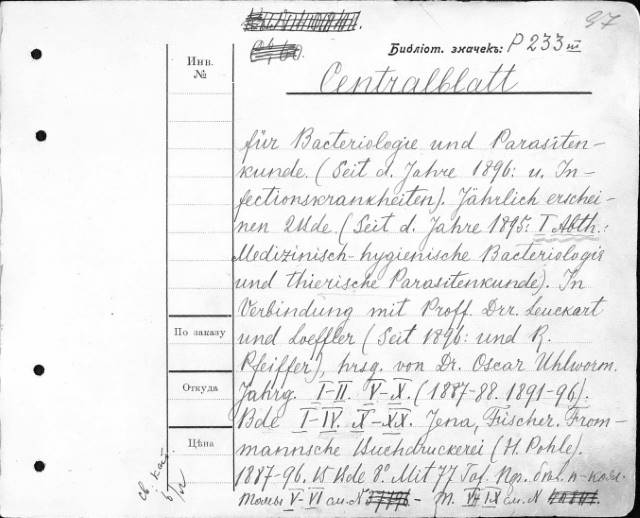 97
Библіот. значекъ: P 233 III
Инв.
№
Centralblatt
für Bacteriologie und Parasiten-
kunde. (Seit d. Jahre 1896: u. In-
fectionskrankheiten). Jährlich erschei-
nen 2 Bde. (Seit d. Jahre 1895: I Abth.:
Medizinisch-hygienische Bacteriologie
und thierische Parasitenkunde). In
Verbindung mit Proff. Drr. Leuckart
По заказу
und Loeffler (Seit 1896: und R.
Pfeiffer), hrsg. von Dr. Oscar Uhlworm.
Откуда
Jahrg. I-II. V-X. (1887-88. 1891-96).
Bde I-IV. X-XX. Jena, Fischer. From-
Цѣна
mannsche Buchdruckerei (H. Pohle).
1887-96. 15 Bde 8°. Mit 77 Taf.
Томы V-VI см. № - Т. VII-IX см. №
св. кат.